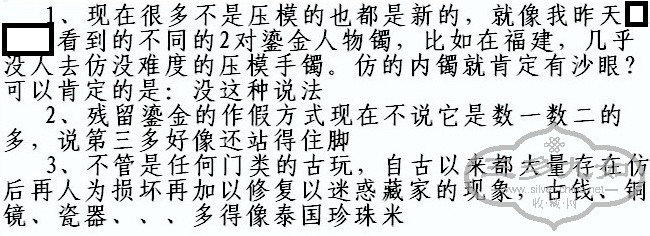 1、现在很多不是压模的也都是新的，就像我昨天
看到的不同的2对鎏金人物镯，比如在福建，几乎
没人去仿没难度的压模手镯。仿的内镯就肯定有沙眼？
可以肯定的是：没这种说法
2、残留鎏金的作假方式现在不说它是数一数二的
多，说第三多好像还站得住脚
3、不管是任何门类的古玩，自古以来都大量存在仿
后再人为损坏再加以修复以迷惑藏家的现象，古钱、铜
镜、瓷器、、、多得像泰国珍珠米
收·藏·网